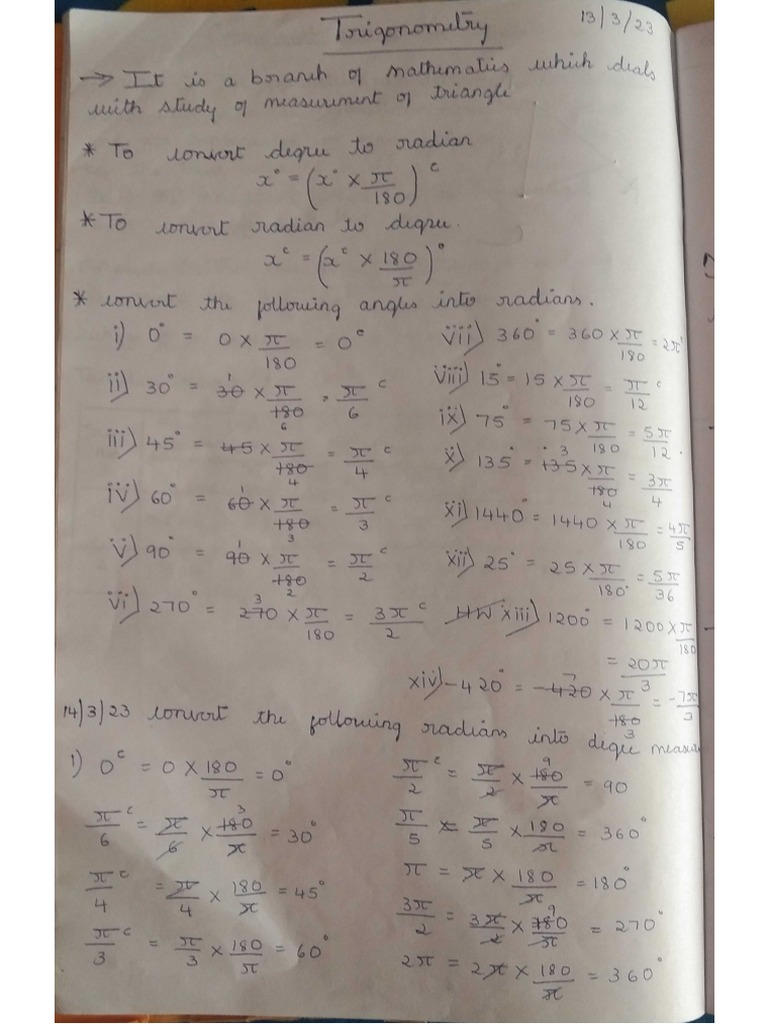 Trigonometry
13/3/23
→ It is a branch of mathematics which deals
with study of measurement of triangle
* To convert degree to radian
x° = (x° × π/180)ᶜ
* To convert radian to degree.
xᶜ = (xᶜ × 180/π)°
* convert the following angles into radians.
i) 0° = 0 × π/180 = 0ᶜ
ii) 30° = 30 × π/180 = π/6ᶜ
iii) 45° = 45 × π/180 = π/4ᶜ
iv) 60° = 60 × π/180 = π/3ᶜ
v) 90° = 90 × π/180 = π/2ᶜ
vi) 270° = 270 × π/180 = 3π/2ᶜ
vii) 360° = 360 × π/180 = 2πᶜ
viii) 15° = 15 × π/180 = π/12ᶜ
ix) 75° = 75 × π/180 = 5π/12.
x) 135° = 135 × π/180 = 3π/4
xi) 1440° = 1440 × π/180 = 4π/5
xii) 25° = 25 × π/180° = 5π/36
HW xiii) 1200° = 1200 × π/180
= 20π/3
xiv) -420° = -420 × π/180 = -7π/3
14/3/23 convert the following radians into degree measu
1) 0ᶜ = 0 × 180/π = 0°
π/6ᶜ = π/6 × 180/π = 30°
π/4ᶜ = π/4 × 180/π = 45°
π/3ᶜ = π/3 × 180/π = 60°
π/2ᶜ = π/2 × 180/π = 90
π/5 = π/5 × 180/π = 360°
π = π × 180/π = 180°
3π/2 = 3π/2 × 180/π = 270°
2π = 2π × 180/π = 360°